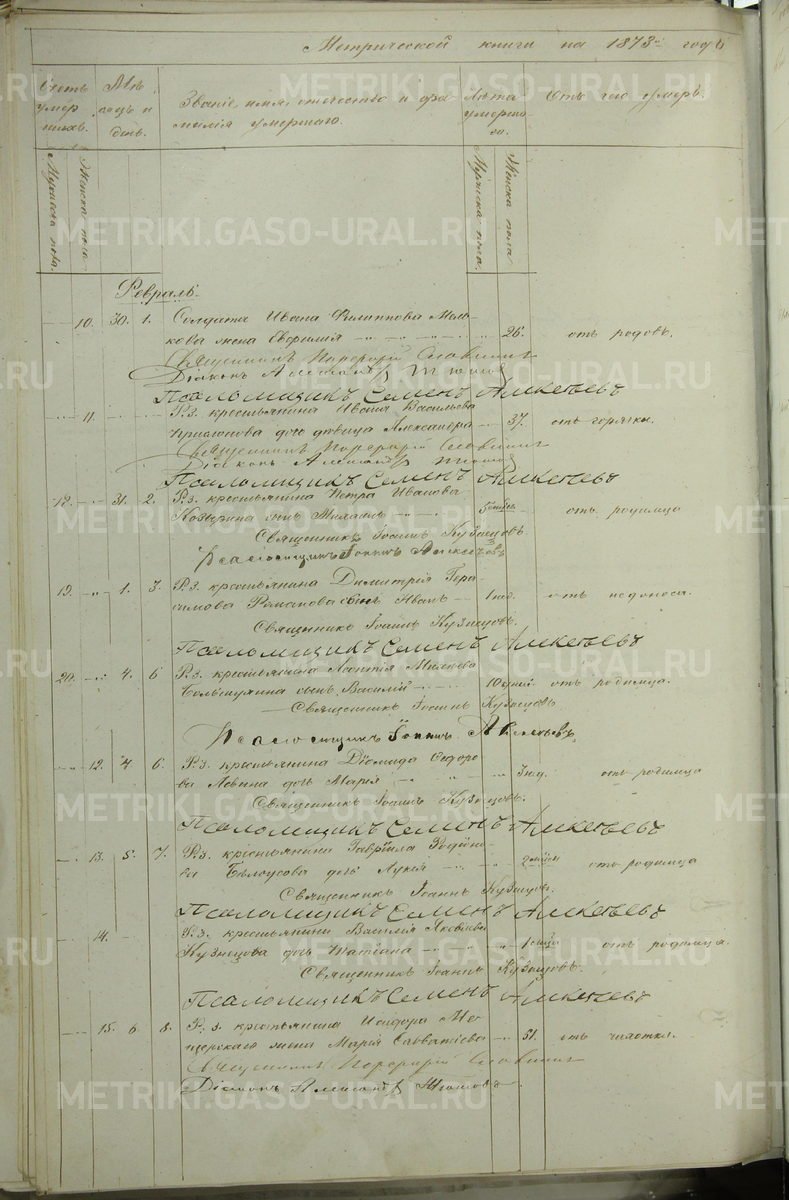 Метрической книги на 1873й годъ
Счетъ умершихъ.
Мѣсяцъ и день.
Званіе, имя, отечество и фамилія умершаго.
Лѣта умершаго.
Отъ чего умеръ.
Мужеска пола.
Женска пола
Мужеска пола.
Женска пола
Февраль.
10. 30. 1. Солдата Ивана Филиппова
кова жена Евфимія 26. отъ родовъ.
Священникъ Порфирій Славнинъ
Діаконъ Александръ
Псаломщикъ Семенъ Алексѣевъ
11. Р.З. крестьянина Ивана Васильева
дочь дѣвица Александра 37. отъ горячки.
Священникъ Порфирій Славнинъ
Діаконъ Александръ
Псаломщикъ Семенъ Алексѣевъ
31. 2. Р.З. крестьянина Петра Иванова
Козырина сынъ Михаилъ отъ родимца
Священникъ Іоаннъ Кузнецовъ
Псаломщикъ Іоаннъ Алексѣевъ
19. 1. 3. Р.З. крестьянина Димитрія Гера-
симова Романова сынъ Иванъ 1 нед. отъ недоноса.
Священникъ Іоаннъ Кузнецовъ.
Псаломщикъ Семенъ Алексѣевъ
20. 4. 6 Р.З. крестьянина Леонтія
сынъ Василій 10 дней отъ родимца.
Священникъ Іоаннъ Кузнецовъ
Псаломщикъ Іоаннъ Алексѣевъ
12. 4 6. Р.З. крестьянина Діомида Ѳедоро-
ва Левина дочь Марія 3 нед. отъ родимца
Священникъ Іоаннъ Кузнецовъ.
Псаломщикъ Семенъ Алексѣевъ
13. 5. 7. Р.З. крестьянина Гавріила Родіо-
ва Бѣлоусова дочь отъ родимца
Священникъ Іоаннъ Кузнецовъ.
Псаломщикъ Семенъ Алексѣевъ
14. Р.З. крестьянина Василія Яковлева
Кузнецова дочь Татіана отъ родимца.
Священникъ Іоаннъ Кузнецовъ.
Псаломщикъ Семенъ Алексѣевъ
15. 6 8. Р.З. крестьянина Исидора Ме-
щерскаго жена Марія Савватіева 51. отъ чахотки.
Священникъ Порфирій Славнинъ
Діаконъ Александръ
METRIKI.GASO-URAL.RU